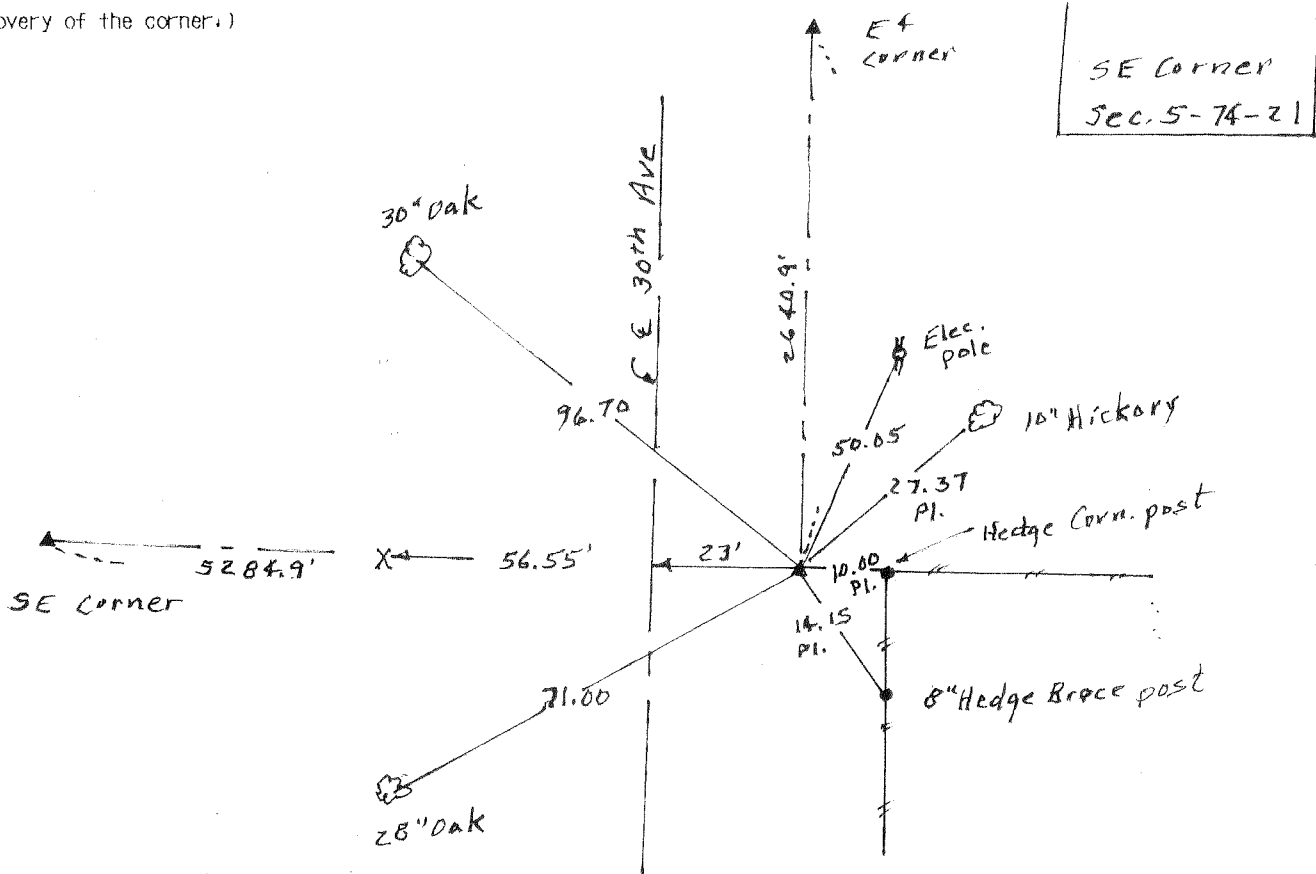 overy of the corner.)
E 4
corner
SE Corner
Sec. 5-74-21
30" Oak
℄ E 30th Ave
2640.9'
Elec.
pole
10" Hickory
96.70
50.05
27.37
Pl.
Hedge Corn. post
SE Corner
5284.9'
X
56.55'
23'
10.00
Pl.
14.15
Pl.
8" Hedge Brace post
71.00
28" Oak